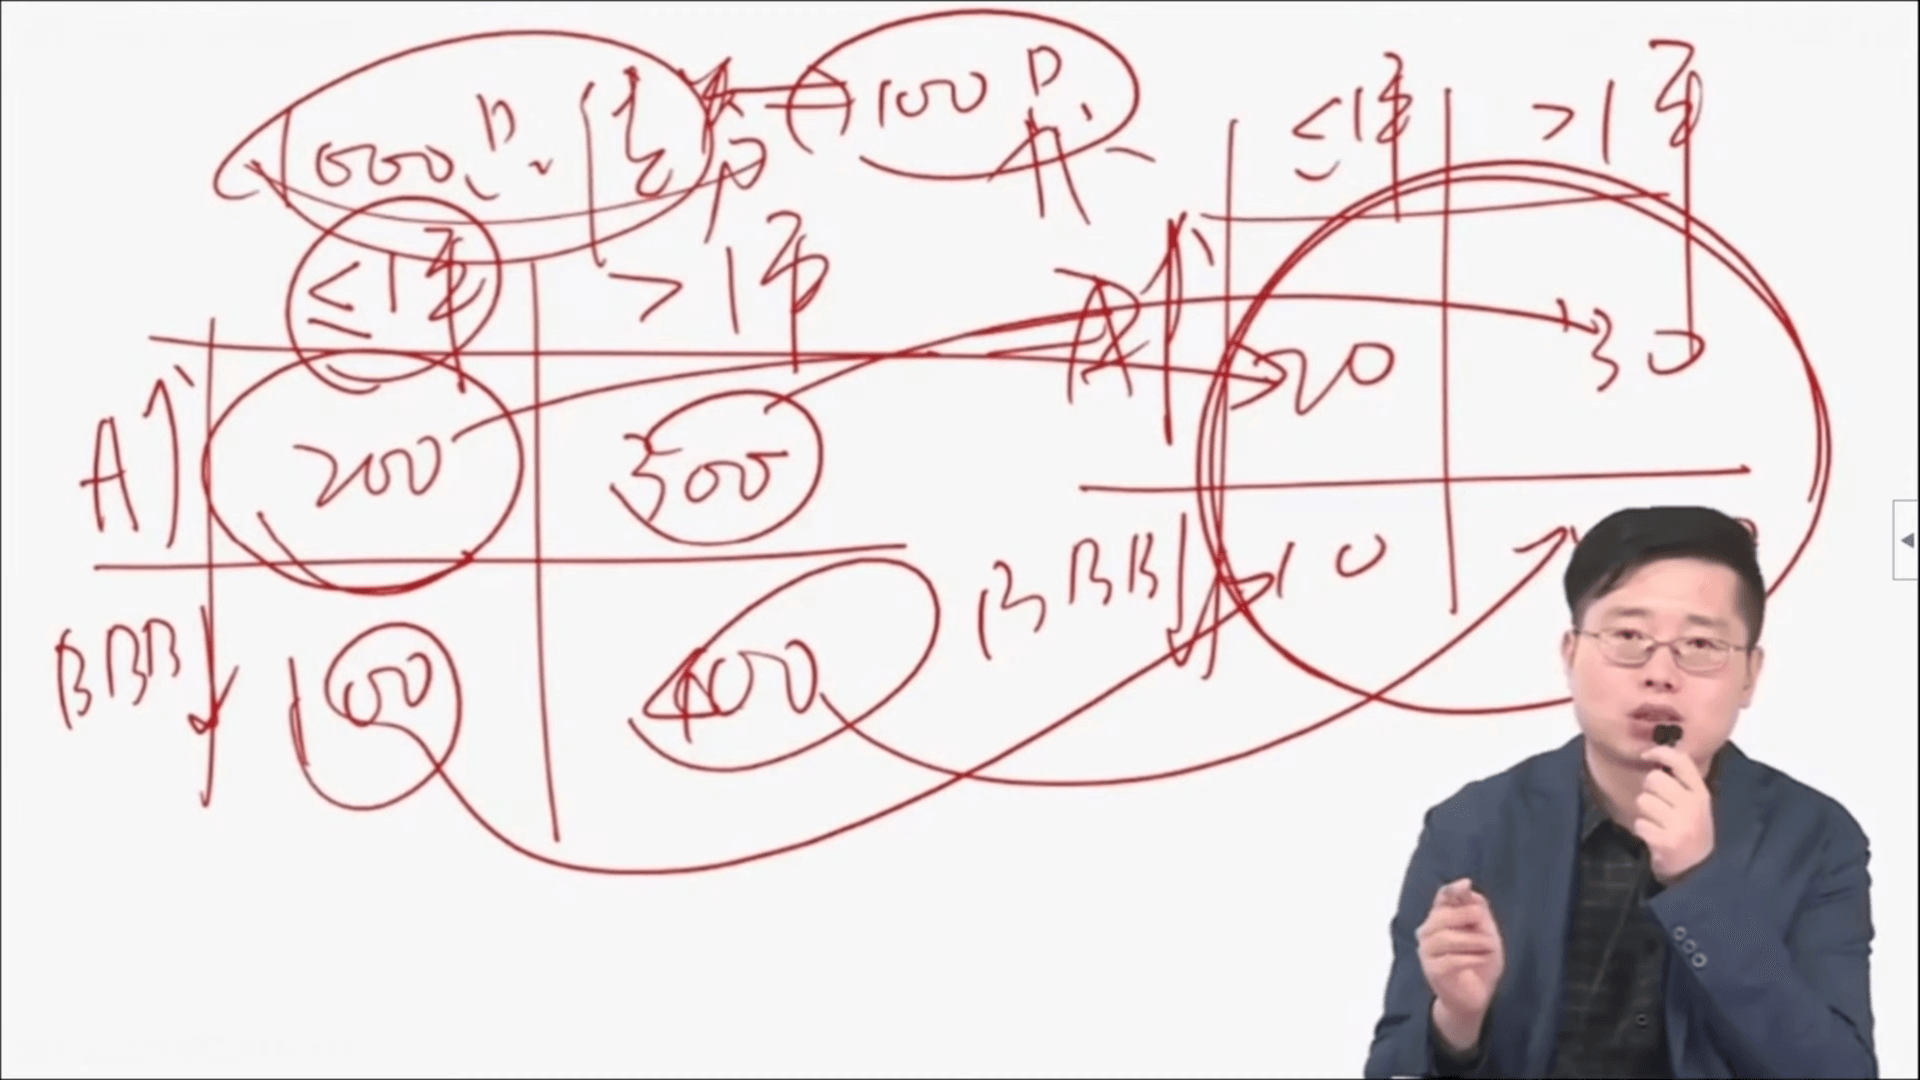 1000户 1亿
100户
≤1年 >1年
A↑ 200 300
BBB↓ 100 400
≤1年 >1年
A↑ 20 30
BBB↓ 10